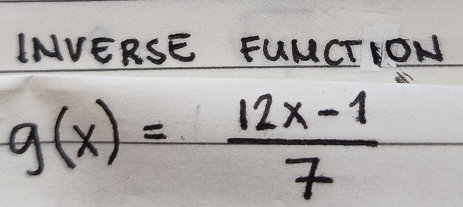 INVERSE FUNCTION
g(x) = (12x-1)/7